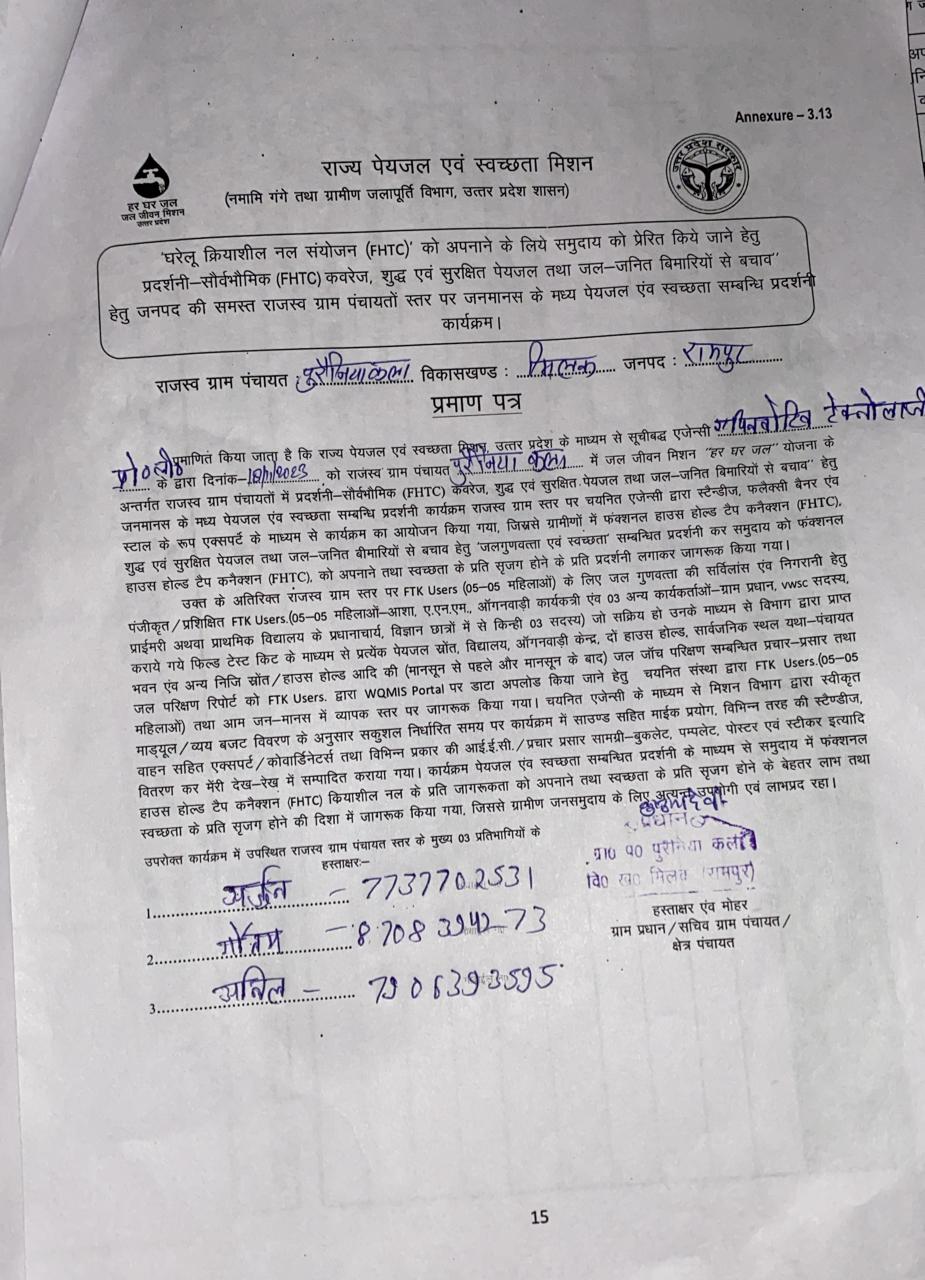 Annexure – 3.13
हर घर जल
जल जीवन मिशन
उत्तर प्रदेश
राज्य पेयजल एवं स्वच्छता मिशन
(नमामि गंगे तथा ग्रामीण जलापूर्ति विभाग, उत्तर प्रदेश शासन)
उत्तर प्रदेश सरकार
'घरेलू क्रियाशील नल संयोजन (FHTC)' को अपनाने के लिये समुदाय को प्रेरित किये जाने हेतु
प्रदर्शनी–सौर्वभौमिक (FHTC) कवरेज, शुद्ध एवं सुरक्षित पेयजल तथा जल–जनित बिमारियों से बचाव"
हेतु जनपद की समस्त राजस्व ग्राम पंचायतों स्तर पर जनमानस के मध्य पेयजल एंव स्वच्छता सम्बन्धि प्रदर्शनी
कार्यक्रम।
राजस्व ग्राम पंचायत : पुरैनियाकला विकासखण्ड : मिलक जनपद : रामपुर
प्रमाण पत्र
प्रमाणित किया जाता है कि राज्य पेयजल एवं स्वच्छता मिशन, उत्तर प्रदेश के माध्यम से सूचीबद्ध एजेन्सी टेक्नोलाजी
प्रा०ली० के द्वारा दिनांक- को राजस्व ग्राम पंचायत पुरैनिया कला में जल जीवन मिशन "हर घर जल" योजना के
अन्तर्गत राजस्व ग्राम पंचायतों में प्रदर्शनी–सौर्वभौमिक (FHTC) कवरेज, शुद्ध एवं सुरक्षित पेयजल तथा जल–जनित बिमारियों से बचाव" हेतु
जनमानस के मध्य पेयजल एंव स्वच्छता सम्बन्धि प्रदर्शनी कार्यक्रम राजस्व ग्राम स्तर पर चयनित एजेन्सी द्वारा स्टैन्डीज, फलैक्सी बैनर एंव
स्टाल के रूप एक्सपर्ट के माध्यम से कार्यक्रम का आयोजन किया गया, जिससे ग्रामीणों में फंक्शनल हाउस होल्ड टैप कनैक्शन (FHTC),
शुद्ध एवं सुरक्षित पेयजल तथा जल–जनित बीमारियों से बचाव हेतु 'जलगुणवत्ता एवं स्वच्छता' सम्बन्धित प्रदर्शनी कर समुदाय को फंक्शनल
हाउस होल्ड टैप कनैक्शन (FHTC), को अपनाने तथा स्वच्छता के प्रति सृजग होने के प्रति प्रदर्शनी लगाकर जागरूक किया गया।
उक्त के अतिरिक्त राजस्व ग्राम स्तर पर FTK Users (05–05 महिलाओं) के लिए जल गुणवत्ता की सर्विलांस एंव निगरानी हेतु
पंजीकृत/प्रशिक्षित FTK Users.(05–05 महिलाओं-आशा, ए.एन.एम., ऑगनवाड़ी कार्यकत्री एंव 03 अन्य कार्यकर्ताओं–ग्राम प्रधान, vwsc सदस्य,
प्राईमरी अथवा प्राथमिक विद्यालय के प्रधानाचार्य, विज्ञान छात्रों में से किन्ही 03 सदस्य) जो सक्रिय हो उनके माध्यम से विभाग द्वारा प्राप्त
कराये गये फिल्ड टेस्ट किट के माध्यम से प्रत्येंक पेयजल स्रोंत, विद्यालय, ऑगनवाड़ी केन्द्र, दों हाउस होल्ड, सार्वजनिक स्थल यथा–पंचायत
भवन एंव अन्य निजि स्रोंत/हाउस होल्ड आदि की (मानसून से पहले और मानसून के बाद) जल जॉच परिक्षण सम्बन्धित प्रचार–प्रसार तथा
जल परिक्षण रिपोर्ट को FTK Users. द्वारा WQMIS Portal पर डाटा अपलोड किया जाने हेतु चयनित संस्था द्वारा FTK Users.(05–05
महिलाओं) तथा आम जन–मानस में व्यापक स्तर पर जागरूक किया गया। चयनित एजेन्सी के माध्यम से मिशन विभाग द्वारा स्वीकृत
माड्यूल/व्यय बजट विवरण के अनुसार सकुशल निर्धारित समय पर कार्यक्रम में साउण्ड सहित माईक प्रयोग, विभिन्न तरह की स्टैण्डीज,
वाहन सहित एक्सपर्ट/कोवार्डिनेटर्स तथा विभिन्न प्रकार की आई.ई.सी./प्रचार प्रसार सामग्रि–बुकलेट, पम्पलेट, पोस्टर एवं स्टीकर इत्यादि
वितरण कर मेरी देख–रेख में सम्पादित कराया गया। कार्यक्रम पेयजल एंव स्वच्छता सम्बन्धित प्रदर्शनी के माध्यम से समुदाय में फंक्शनल
हाउस होल्ड टैप कनैक्शन (FHTC) कियाशील नल के प्रति जागरूकता को अपनाने तथा स्वच्छता के प्रति सृजग होने के बेहतर लाभ तथा
स्वच्छता के प्रति सृजग होने की दिशा में जागरूक किया गया, जिससे ग्रामीण जनसमुदाय के लिए अत्यन्त उपयोगी एवं लाभप्रद रहा।
उपरोक्त कार्यक्रम में उपस्थित राजस्व ग्राम पंचायत स्तर के मुख्य 03 प्रतिभागियों के
हस्ताक्षरः–
प्रधान
ग्रा० प० पुरैनिया कलां
वि० ख० मिलक (रामपुर)
1. अर्जुन – 7737702531
2. गौतम – 8708394273
3. अनिल – 7906393595
हस्ताक्षर एंव मोहर
ग्राम प्रधान/सचिव ग्राम पंचायत/
क्षेत्र पंचायत
15